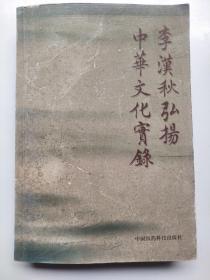 李漢秋弘揚
中華文化實錄
中国医药科技出版社